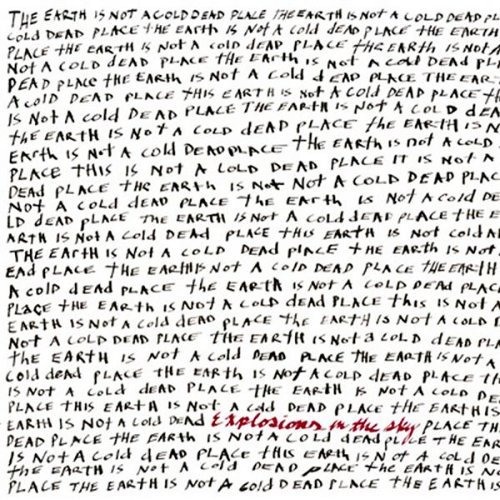 THE EARTH IS NOT A COLD DEAD PLACE THE EARTH IS NOT A COLD DEAD PL
COLD DEAD PLACE THE EARTH IS NOT A COLD DEAD PLACE THE EARTH
PLACE THE EARTH IS NOT A COLD DEAD PLACE THE EARTH IS NOT
NOT A COLD DEAD PLACE THE EARTH IS NOT A COLD DEAD PL
DEAD PLACE THE EARTH IS NOT A COLD dEAD PLACE THE EAR
A COLD DEAD PLACE THIS EARTH IS NOT A COLD DEAD PLACE
IS NOT A COLD DEAD PLACE THE EARTH IS NOT A COLD DEA
THE EARTH IS NOT A COLD dEAD PLACE THE EARTH IS N
EARTH IS NOT A COLD DEAD PLACE THE EARTH IS NOT A COLD
PLACE THIS IS NOT A COLD DEAD PLACE IT IS NOT A
DEAD PLACE THE EARTH IS NOT NOT A COLD DEAD PLAC
NOT A COLD DEAD PLACE THE EARTH IS NOT A COLD DE
LD DEAD PLACE THE EARTH IS NOT A COLD DEAD PLACE THE E
ARTH IS NOT A COLD DEAD PLACE THIS EARTH IS NOT COLD A
THE EARTH IS NOT A COLD DEAD PLACE THE EARTH IS NOT
EAD PLACE THE EARTH IS NOT A COLD DEAD PLACE THE EARTH
A COLD DEAD PLACE THE EARTH IS NOT A COLD DEAD PLAC
PLACE THE EARTH IS NOT A COLD DEAD PLACE THIS IS NOT A
EARTH IS NOT A COLD DEAD PLACE THE EARTH IS NOT A COLD
NOT A COLD DEAD PLACE THE EARTH IS NOT A COLD DEAD PL
THE EARTH IS NOT A COLD DEAD PLACE THE EARTH IS NOT A
COLD DEAD PLACE THE EARTH IS NOT A COLD DEAD PLACE TH
IS NOT A COLD DEAD PLACE THE EARTH IS NOT A COLD DE
PLACE THIS EARTH IS NOT A COLD DEAD PLACE THE EARTH IS
EARTH IS NOT A COLD DEAD Explosions in the sky PLACE TH
DEAD PLACE THE EARTH IS NOT A COLD DEAD PLACE THE EAR
IS NOT A COLD DEAD PLACE THIS EARTH IS NOT A COLD DE
THE EARTH IS NOT A COLD DEAD PLACE THE EARTH IS N
PLACE THE EARTH IS NOT A COLD DEAD PLACE THE EARTH IS